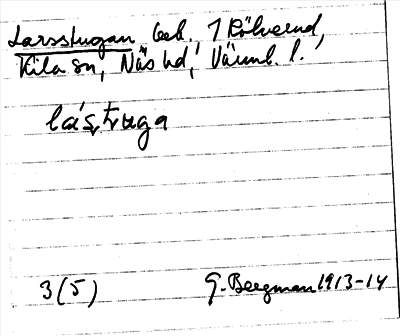 Larsstugan beb. 1 Rölverud,
Kila sn, Näs hd, Värml. l.
lás,tuga
3(5) G. Bergman 1913-14